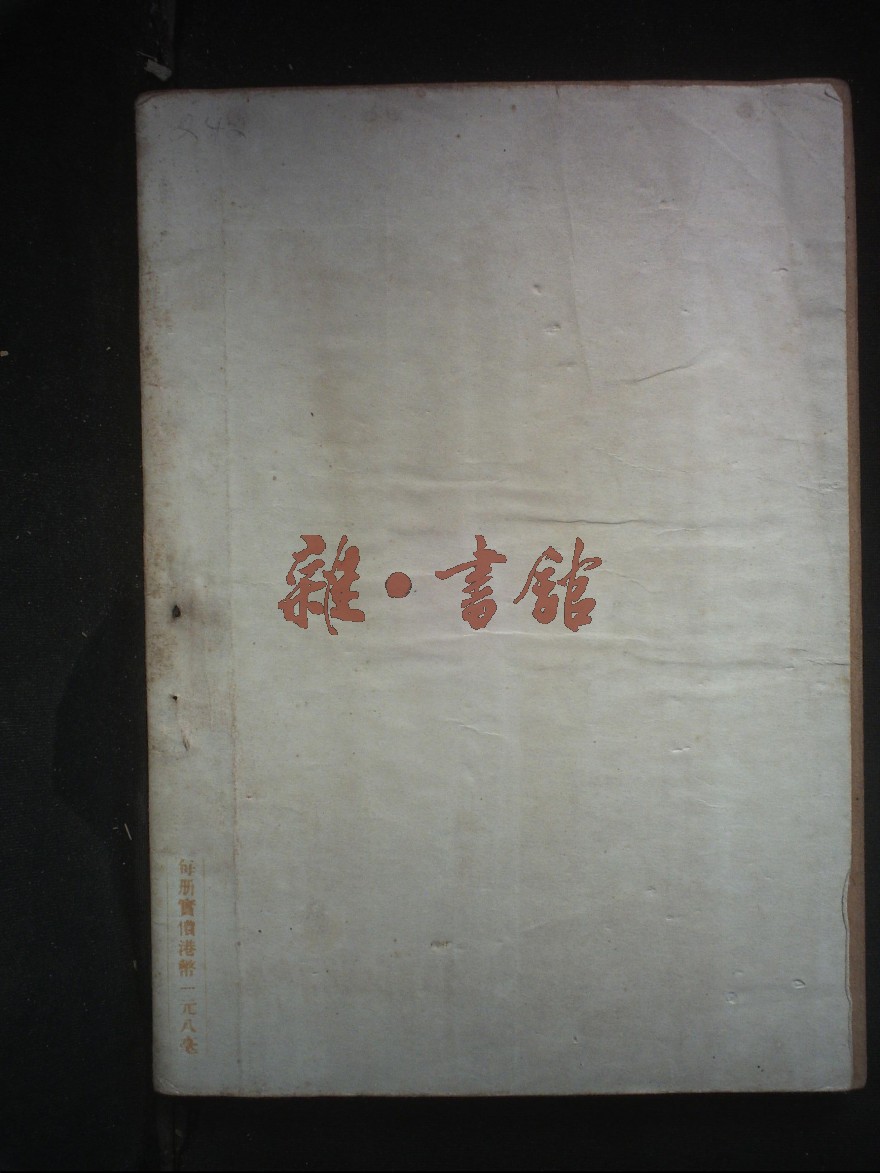 雜·書館
每册實價港幣一元八毫